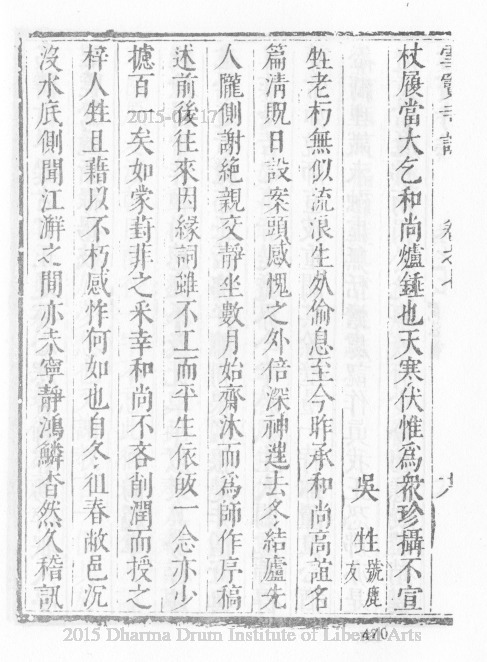 杖履當大乞和尚爐錘也天寒伏惟爲衆珍攝不宣
吳甡號鹿友
甡老朽無似流浪生死偷息至今昨承和尚高誼名
篇淸貺日設案頭感愧之外倍深神遄去冬結廬先
人隴側謝絕親交靜坐數月始齋沐而爲師作序稿
述前後往來因緣詞雖不工而平生依皈一念亦少
攄百一矣如蒙葑菲之采幸和尚不吝削潤而授之
梓人甡且藉以不朽感怍何如也自冬徂春敝邑沉
沒水底側聞江澥之間亦未寧靜鴻鱗杳然久稽訊
2015-03-17
470
2015 Dharma Drum Institute of Liberal Arts